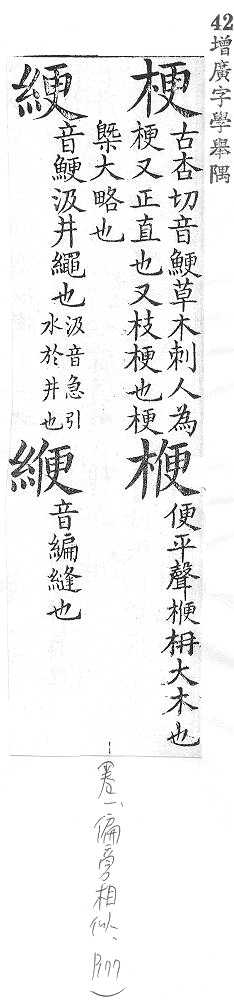 42增廣字學舉隅
梗 古杏切音鯁草木刺人為
梗又正直也又枝梗也梗
槩大略也
楩 便平聲楩枬大木也
綆 音鯁汲井繩也汲音急引
水於井也
緶 音編縫也
卷一、偏旁相似、P.77)